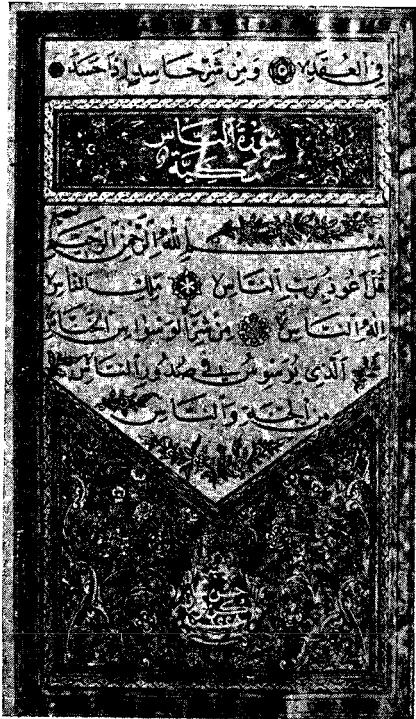 فِي الْعُقَدِ ۝ وَمِنْ شَرِّ حَاسِدٍ إِذَا حَسَدَ
سورة الناس
مكية
بِسْمِ اللَّهِ الرَّحْمَنِ الرَّحِيمِ
قُلْ أَعُوذُ بِرَبِّ النَّاسِ ۝ مَلِكِ النَّاسِ
إِلَهِ النَّاسِ ۝ مِنْ شَرِّ الْوَسْوَاسِ الْخَنَّاسِ
الَّذِي يُوَسْوِسُ فِي صُدُورِ النَّاسِ
مِنَ الْجِنَّةِ وَالنَّاسِ